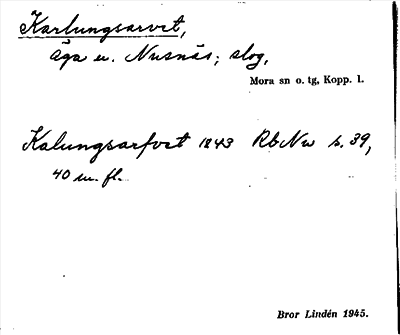 Karlungsarvet,
äga u. Nusnäs; slog.
Mora sn o. tg, Kopp. l.
Kalungsarfvet 1843 RbNw s. 39,
40 m. fl.
Bror Lindén 1945.